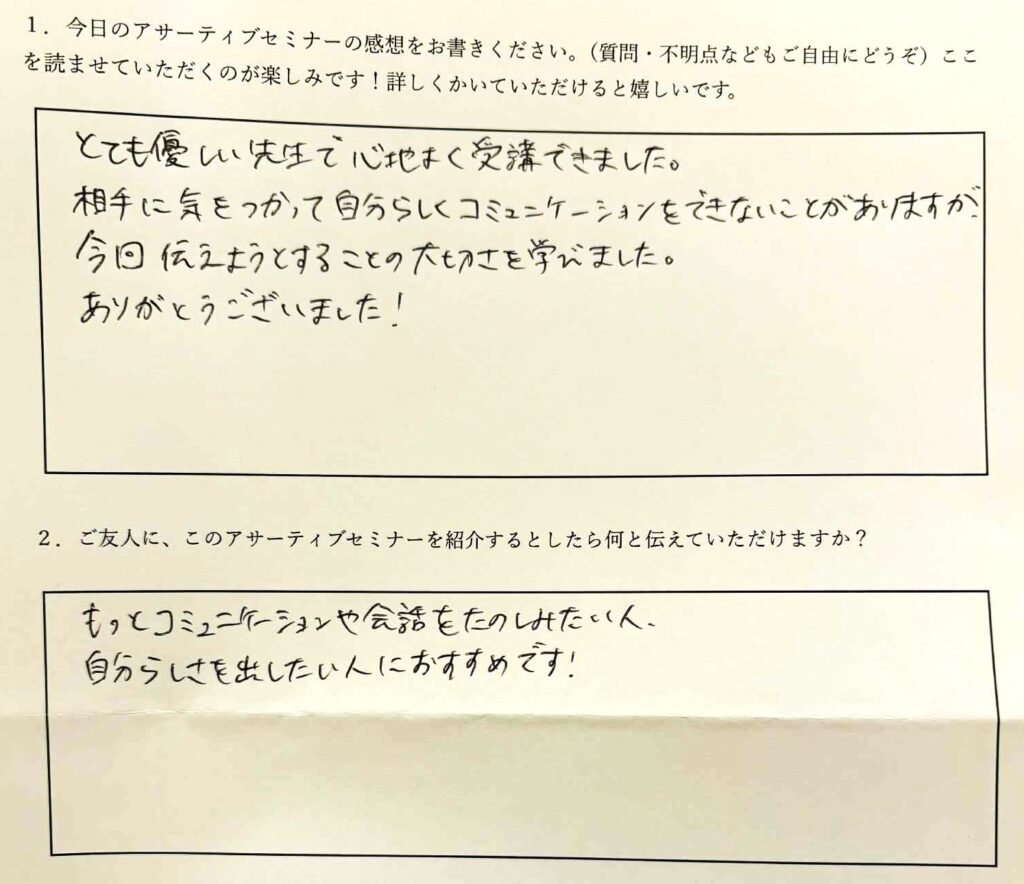 1．今日のアサーティブセミナーの感想をお書きください。（質問・不明点などもご自由にどうぞ）ここ
を読ませていただくのが楽しみです！詳しくかいていただけると嬉しいです。
とても優しい先生で心地よく受講できました。
相手に気をつかって自分らしくコミュニケーションをできないことがありますが、
今回 伝えようとすることの大切さを学びました。
ありがとうございました！
2．ご友人に、このアサーティブセミナーを紹介するとしたら何と伝えていただけますか？
もっとコミュニケーションや会話をたのしみたい人、
自分らしさを出したい人におすすめです！